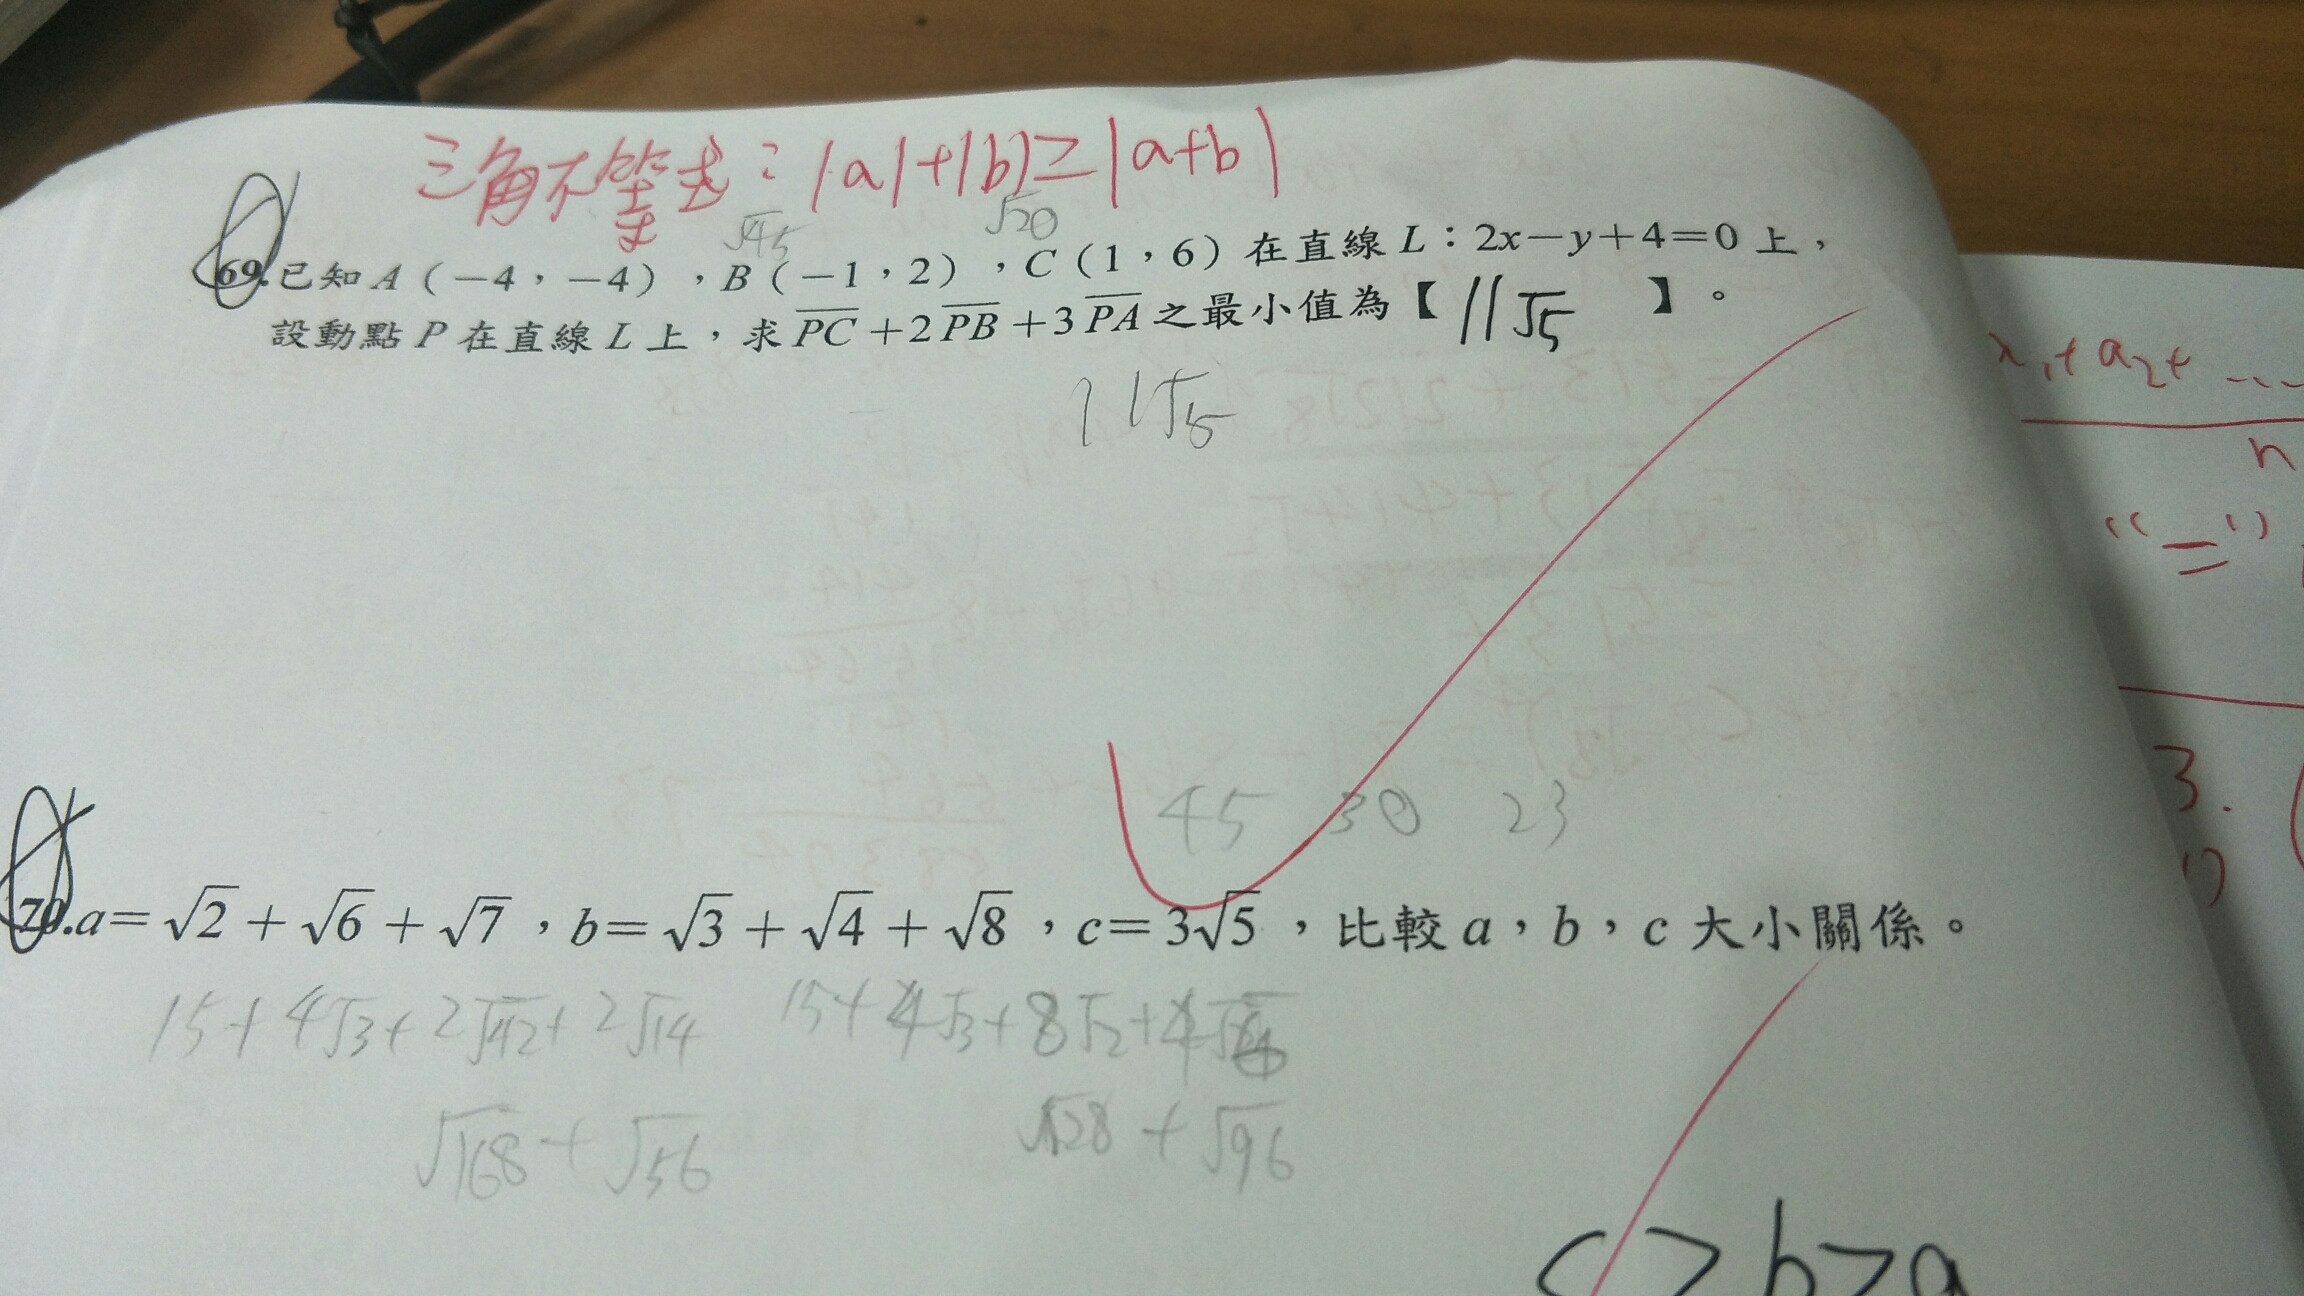 三角不等式：|a|+|b|≥|a+b|
√45 √20
69.已知 A（－4，－4），B（－1，2），C（1，6）在直線 L：2x－y＋4＝0 上，
設動點 P 在直線 L 上，求 PC＋2PB＋3PA 之最小值為【 11√5 】。
11√5
x₁+a₂+ ....
n
"="
3.
45 30 23
70.a＝√2＋√6＋√7，b＝√3＋√4＋√8，c＝3√5，比較 a，b，c 大小關係。
15+4√3+2√42+2√14 15+4√3+8√2+4√6
√168+√56 √128+√96
c>b>a